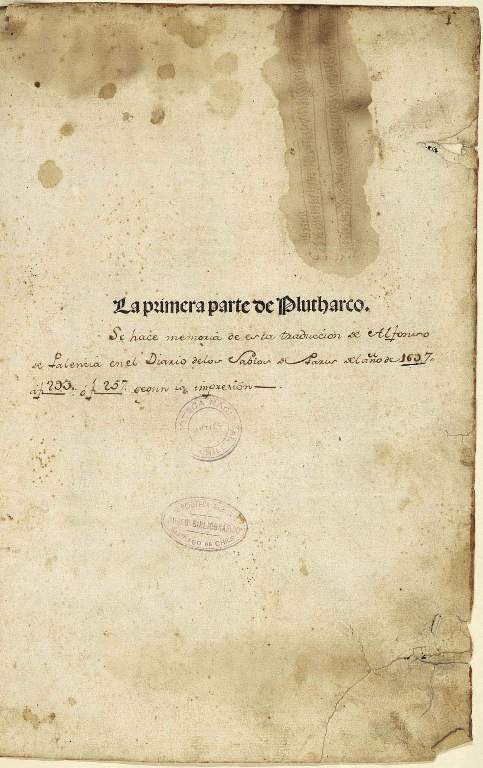 1
La primera parte de Plutharco.
Se hace memoria de esta traduccion de Alfonso
de Palencia en el Diario de los Sabios de Paris del año de 1697.
a f 293. o f 257. segun la impresion
SANTIAGO DE CHILE